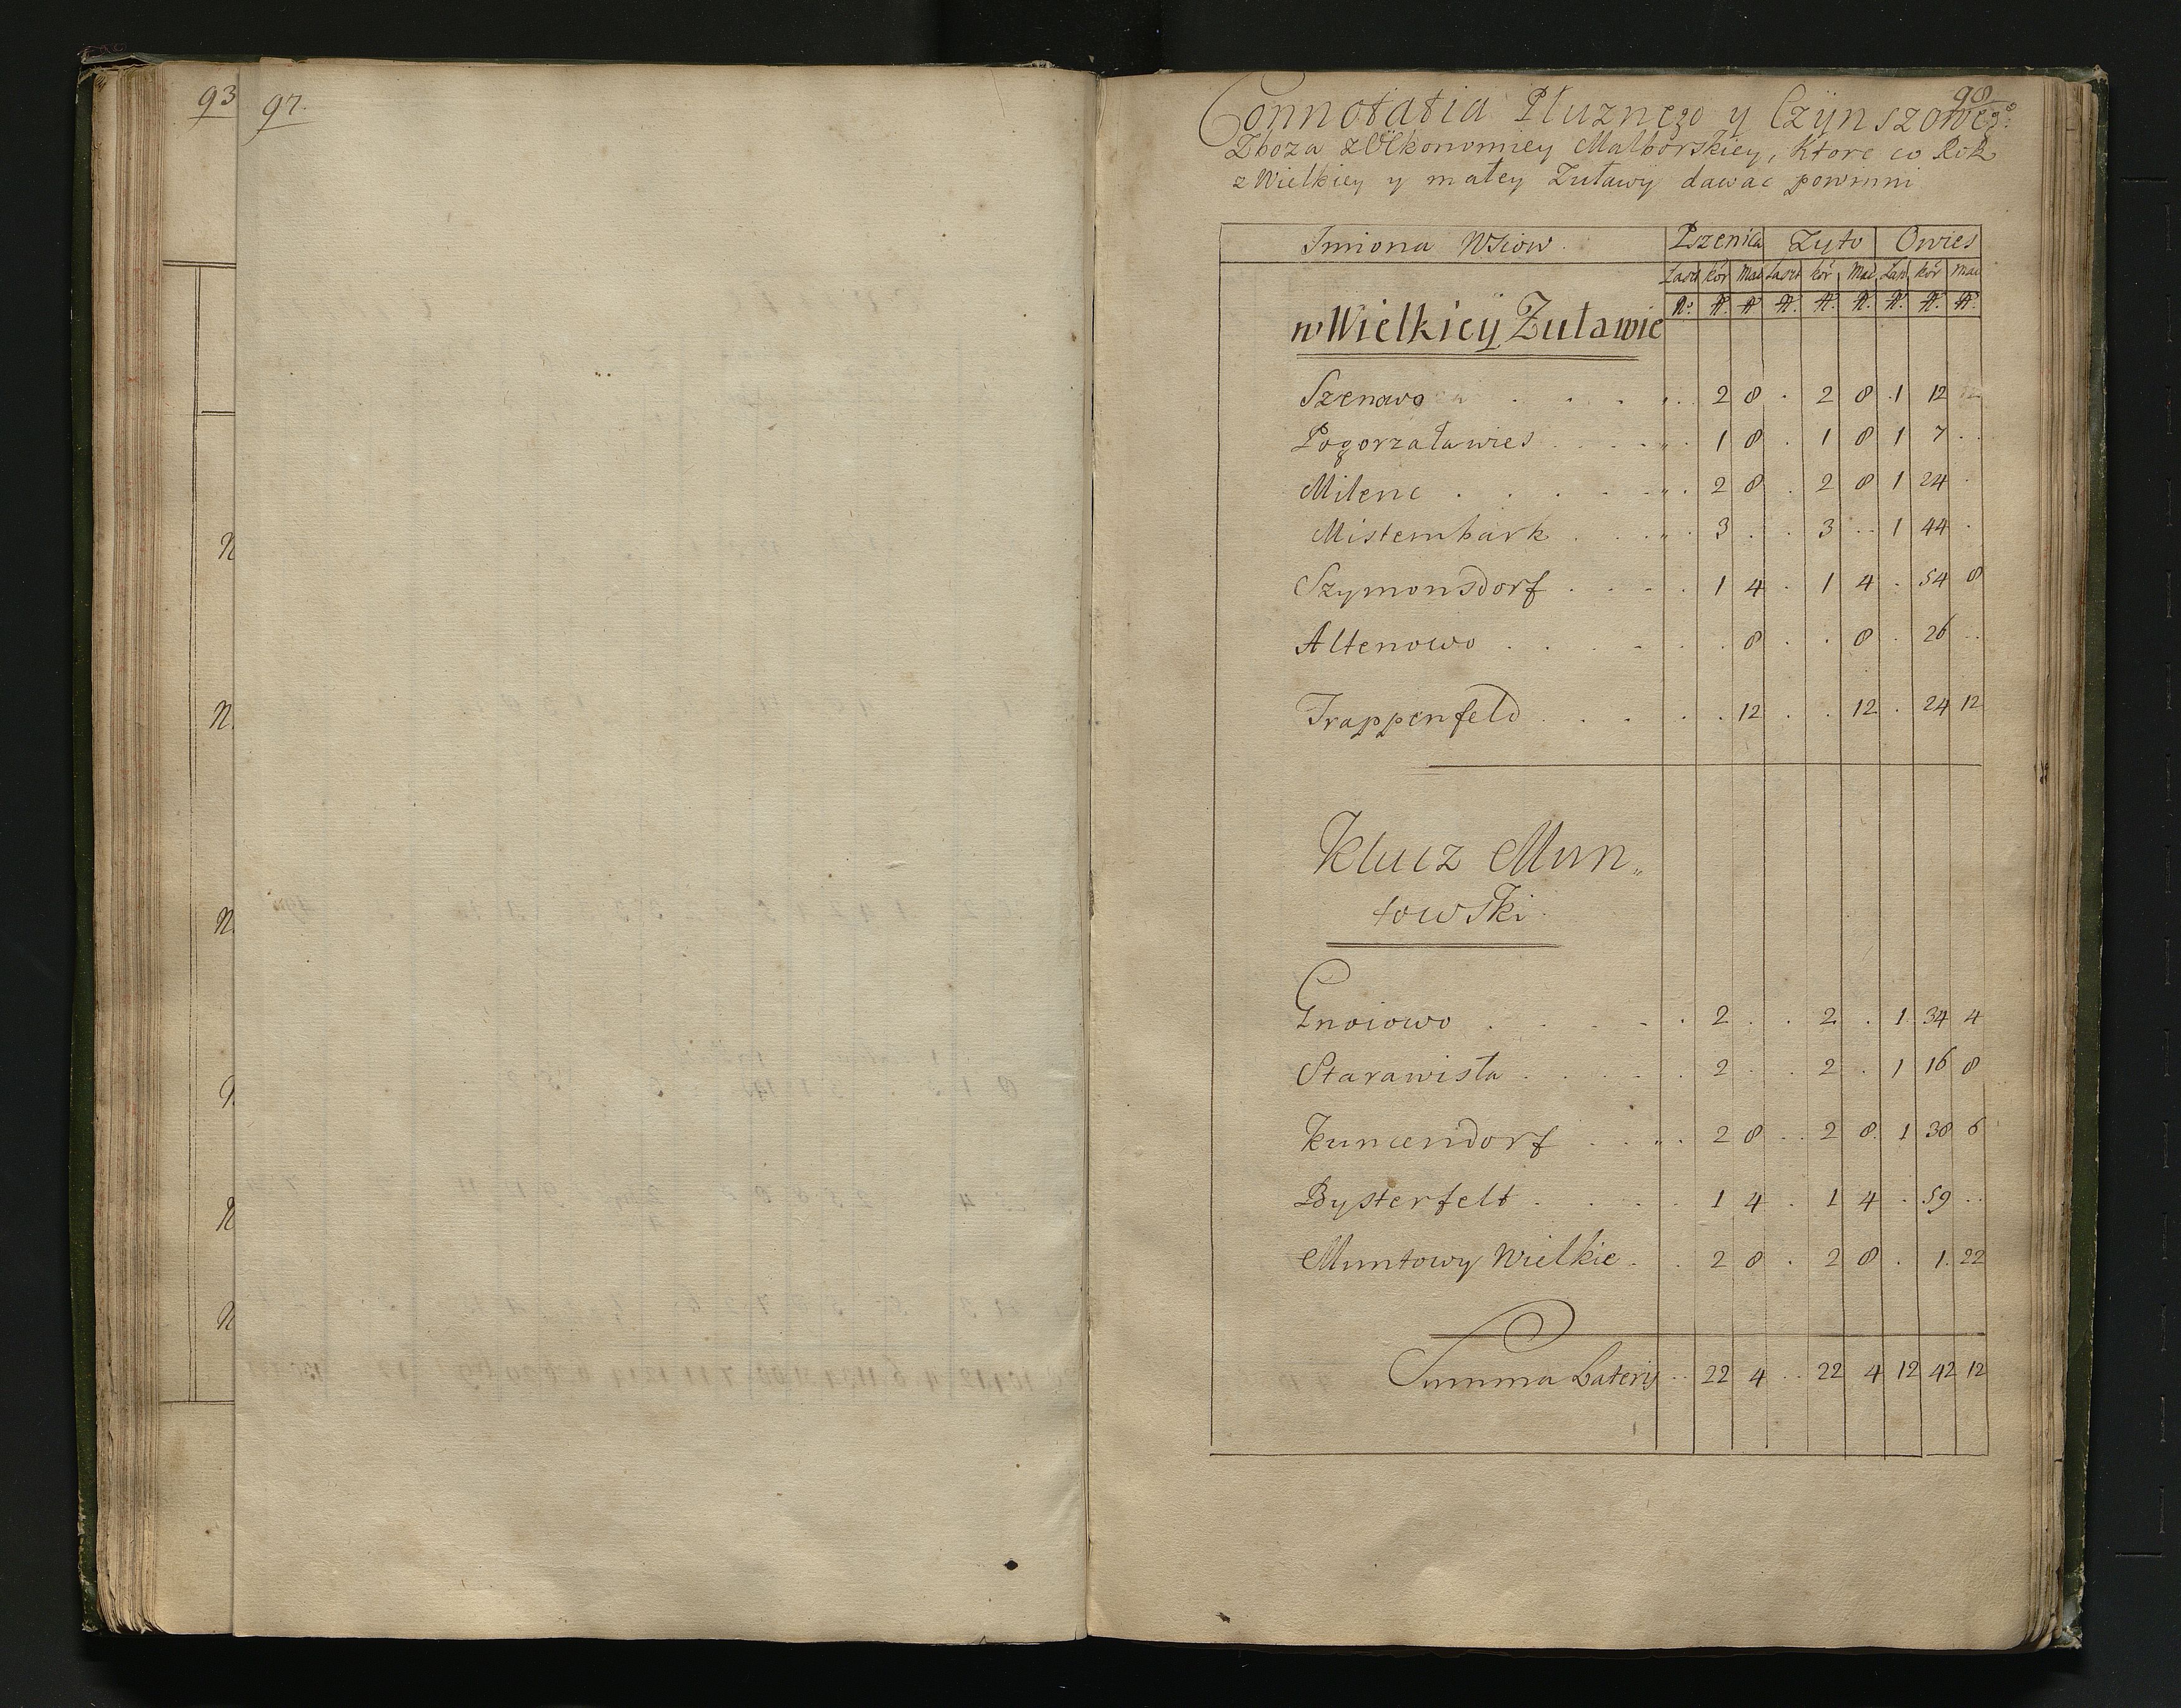 93 97.
N
N.
N.
N
N
98
Connotatia Płuznego y Czÿnszoweg°:
Zboza z Œkonomiey Malborskiey, Ktore co Rok
z Wielkiey y małey Zuławy dawac powinni
Imiona Wsiow. Pszenica Zyto Owies
Laszt kor Mac Laszt kor Mac Lasz kor mac
N° N. N N. N. N. N. N. N.
w Wielkieÿ Zuławie
Szenowo . . . . . . 2 8 . 2 8 . 1 12
Pogorzaławies . . . . . 1 8 . 1 8 1 7 . .
Milenc . . . . . . 2 8 . 2 8 1 24 .
Misternbark . . . . 3 . . 3 . . 1 44 .
Szymonsdorf . . . . 1 4 . 1 4 . 54 8
Altenowo . . . . . . 8 . . 8 . 26 . .
Trappenfeld . . . . . 12 . . 12 . 24 12
Klucz Mun„
towski.
Gnoiowo . . . . . 2 . . 2 . 1 34 4
Starawista . . . . . 2 . . 2 . 1 16 8
Kuncendorf . . „ . 2 8 . . 2 8 . 1 38 6
Bysterfelt . . . . 1 4 . 1 4 . 59 . .
Muntowy Wielkie . . 2 8 . 2 8 . 1. 22
Summa Lateris . . 22 4 . . 22 4 12 42 12